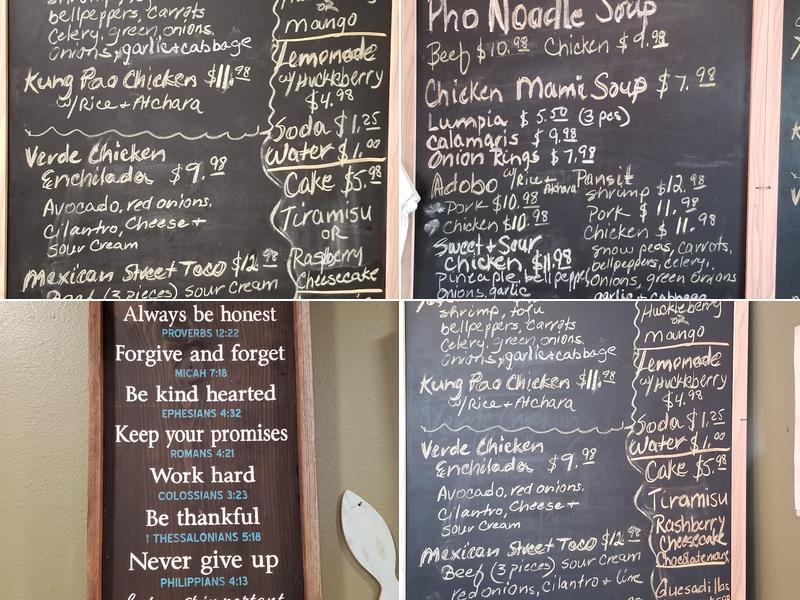 bellpeppers, carrots
Celery, green onions,
onions, garlic+cabbage
Kung Pao Chicken $11.98
w/Rice + Atchara
Verde Chicken
Enchilada $9.98
Avocado, red onions,
Cilantro, Cheese +
sour Cream
Mexican Street Taco $12.98
Beef (3 pieces) sour cream
OR
mango
Lemonade
w/Huckleberry
$4.98
Soda $1.25
Water $1.00
Cake $5.98
Tiramisu
OR
Raspberry
Cheesecake
Pho Noodle Soup
Beef $10.98 Chicken $9.98
Chicken Mami Soup $7.98
Lumpia $5.50 (3 pcs)
Calamaris $9.98
Onion Rings $7.98
Adobo w/Rice + Atchara
Pork $10.98
Chicken $10.98
Sweet + Sour
Chicken $11.98
Pineapple, bellpepper
onions, garlic
Pansit
Shrimp $12.98
Pork $11.98
Chicken $11.98
Snow peas, carrots,
bellpeppers, celery,
onions, green onions
garlic + cabbage
Always be honest
PROVERBS 12:22
Forgive and forget
MICAH 7:18
Be kind hearted
EPHESIANS 4:32
Keep your promises
ROMANS 4:21
Work hard
COLOSSIANS 3:23
Be thankful
1 THESSALONIANS 5:18
Never give up
PHILIPPIANS 4:13
shrimp, tofu
bellpeppers, carrots
Celery, green onions,
onions, garlic+cabbage
Kung Pao Chicken $11.98
w/Rice + Atchara
Verde Chicken
Enchilada $9.98
Avocado, red onions,
Cilantro, Cheese +
sour Cream
Mexican Street Taco $12.98
Beef (3 pieces) sour cream
red onions, cilantro + lime
Huckleberry
OR
mango
Lemonade
w/Huckleberry
$4.98
Soda $1.25
Water $1.00
Cake $5.98
Tiramisu
Rashberry
Cheesecake
Quesadillas